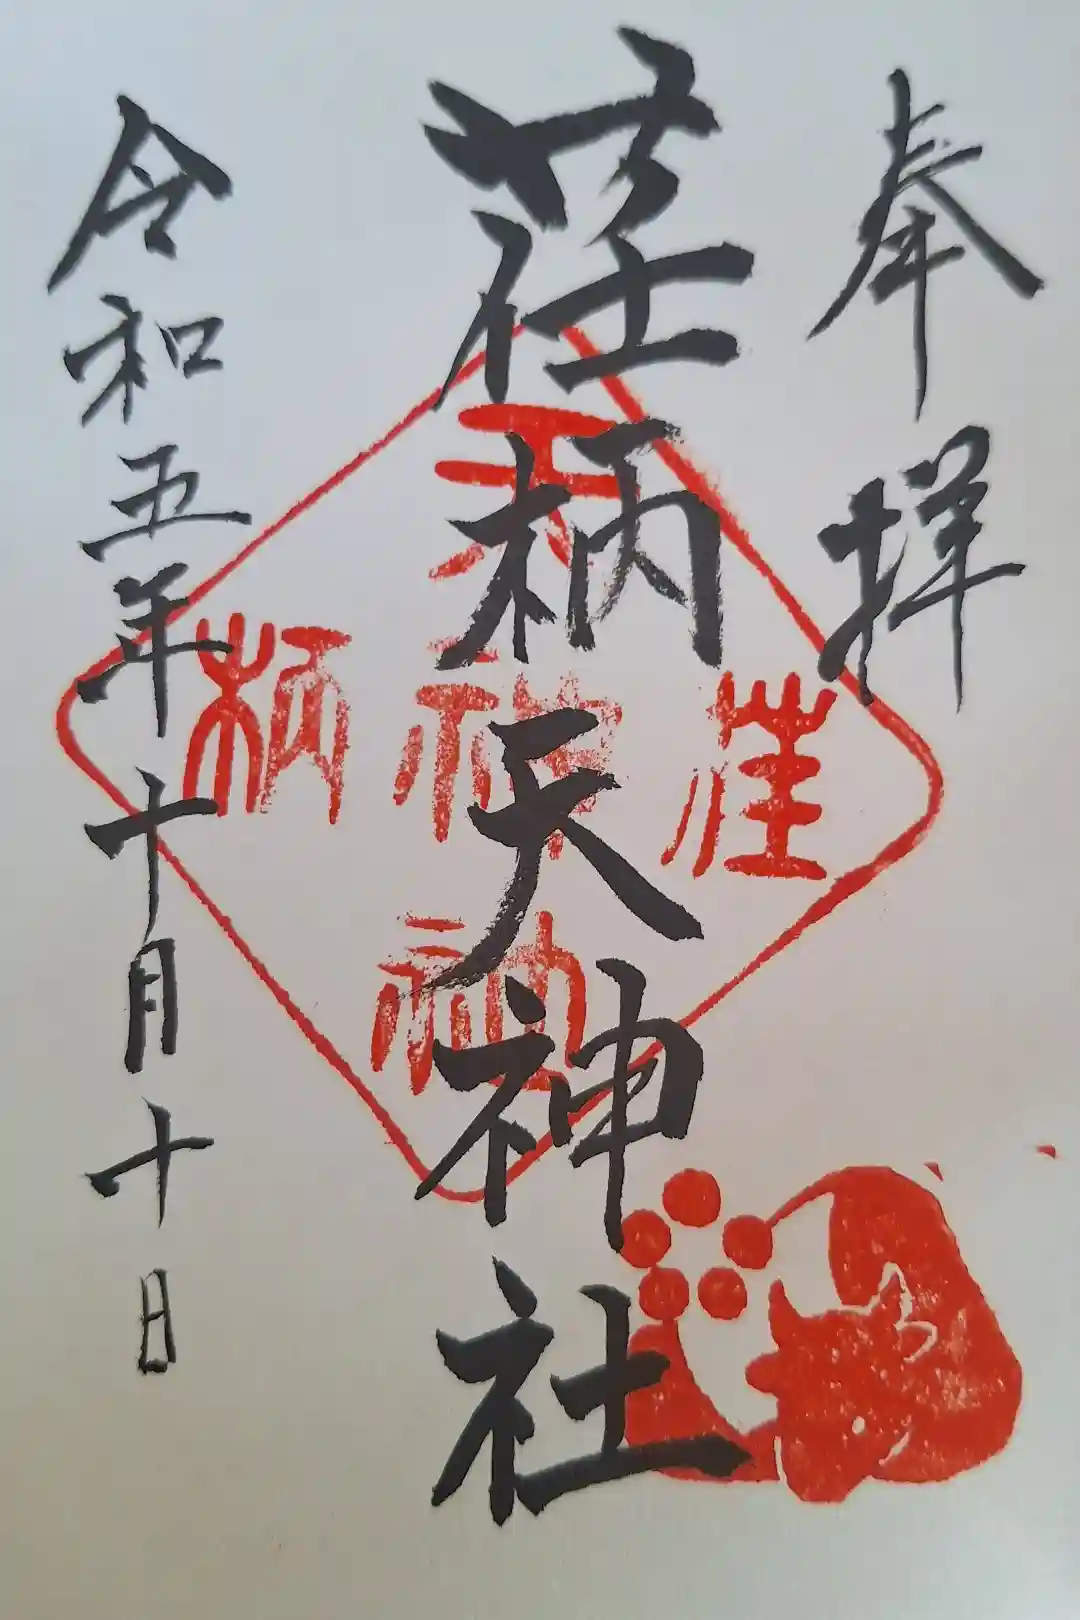 奉拝
荏柄天神社
令和五年十月十日
天
荏神柄
社